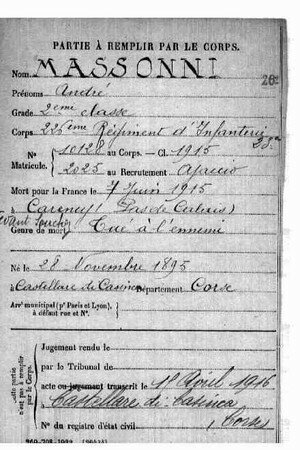 PARTIE À REMPLIR PAR LE CORPS.
Nom MASSONNI
Prénoms André
Grade 2eme classe
Corps 226eme Régiment d'Infanterie
N° 10128 au Corps. - Cl. 1915
Matricule. 2025 au Recrutement Ajaccio
Mort pour la France le 7 Juin 1915
à Carency (Pas de Calais)
Genre de mort Tué à l'ennemi
Né le 28 Novembre 1895
à Castellare di Casinca Département Corse
Arr' municipal (p' Paris et Lyon),
à défaut rue et N°.
Cette partie
n'est pas à remplir
par le Corps.
Jugement rendu le
par le Tribunal de
acte ou jugement transcrit le 18 Avril 1916
à Castellare di Casinca
(Corse)
N° du registre d'état civil